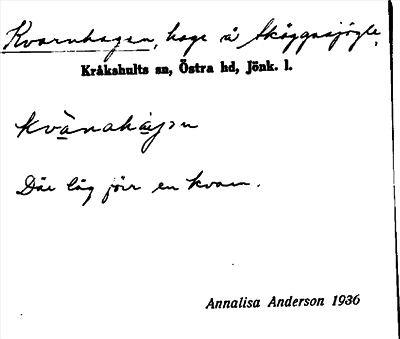 Kvarnhagen, hage å Skäggesjögle.
Kråkshults sn, Östra hd, Jönk. l.
Där låg förr en kvarn.
Annalisa Anderson 1936